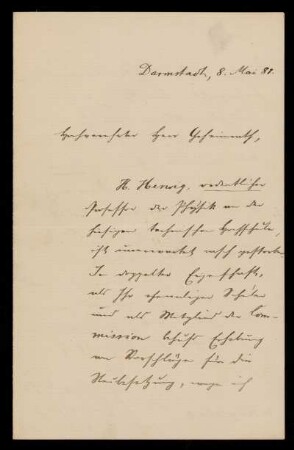 Darmstadt, 8. Mai 81.
Hochverehrter Herr Geheimrath,
H. Herwig, ordentlicher
Professor der Physik an der
hiesigen technischen Hochschule,
ist unerwartet rasch gestorben.
In doppelter Eigenschaft,
als Ihr ehemaliger Schüler
und als Mitglied der Com-
mission behufs Erhebung
von Vorschlägen für die
Neubesetzung, wage ich